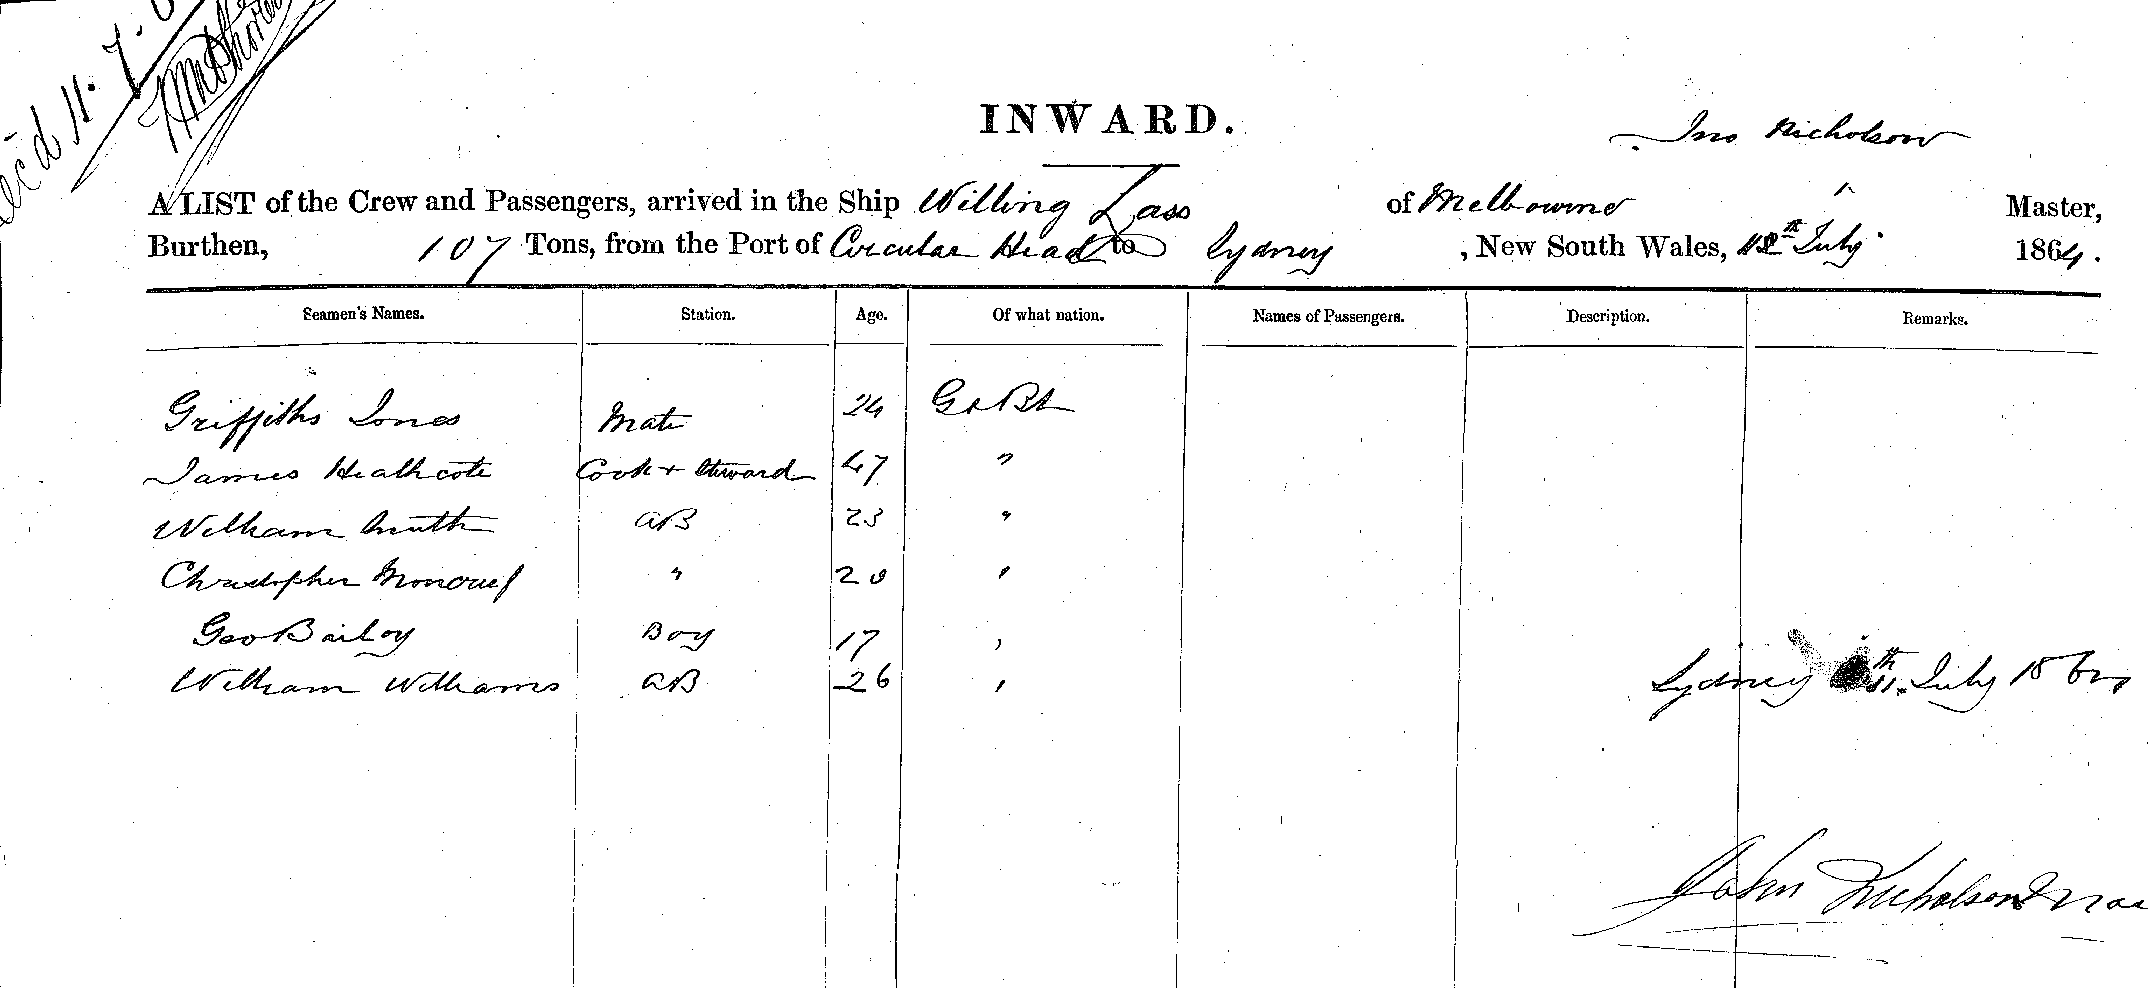 Rec'd 11.7.6
INWARD.
Jno Nicholson
A LIST of the Crew and Passengers, arrived in the Ship Willing Lass of Melbourne Master,
Burthen, 107 Tons, from the Port of Circular Head to Sydney, New South Wales, 11th July 1864.
Seamen's Names. Station. Age. Of what nation. Names of Passengers. Description. Remarks.
Griffiths Jones Mate 24 Gt Bt
James Heathcote Cook + Steward 47 "
William Smith AB 23 "
Christopher Moncrief " 20 "
Geo Bailey Boy 17 "
William Williams AB 26 "
Sydney 11th July 1864
John Nicholson Mas